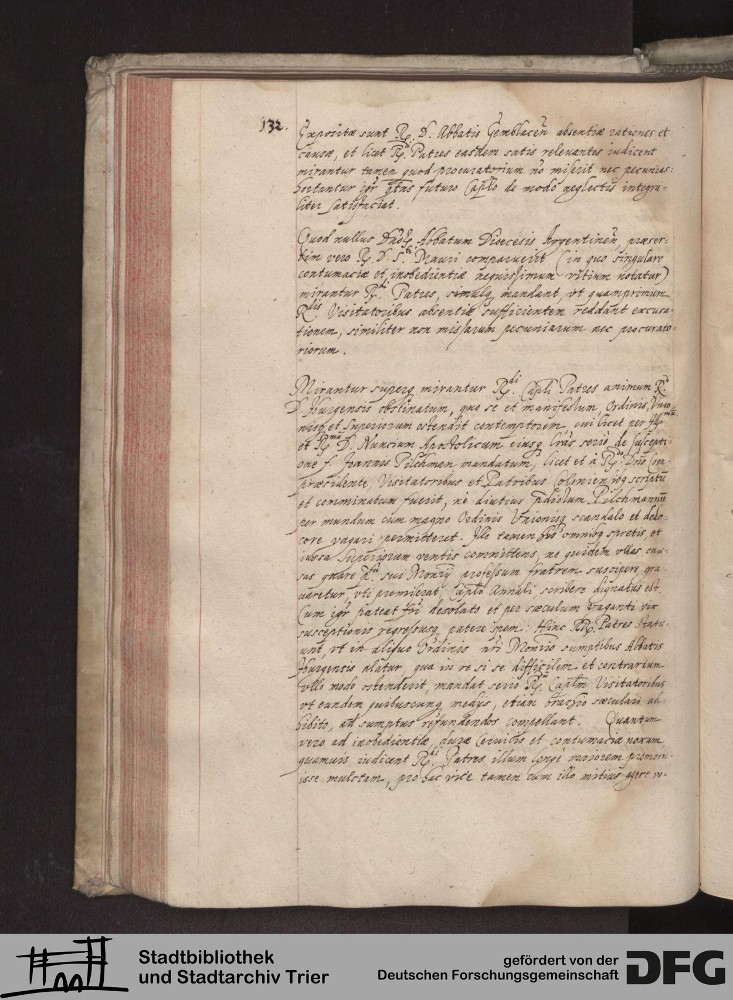 132.
Expositæ sunt R. D. Abbatis Gemblacen̄ absentiæ rationes et
causæ, et licet R. Patres easdem satis releuantes iudicent
mirantur tamen quod procuratorium nō miserit nec pecunias:
hortantur igr̄ q̄tus futuro Caplo de modo neglectis integra-
liter satisfaciat.
Quod nullus Dn̄or̄ Abbatum Dioecesis Argentinen̄, præser-
tim vero R. D. S. Mauri comparuerit (in quo singulare
contumaciæ et inobedientiæ nequissimum vitium notatur)
mirantur R.di Patres, simulq mandant, vt quamprimum
R.dis Visitatoribus absentiæ sufficientem reddant excusa-
tionem, similiter non missarum pecuniarum nec procurato-
riorum.
Mirantur superq mirantur R.di Capli Patres animum R.
D. Iburgensis obstinatum, quo se et manifestum, Ordinis, Vnio-
nisq et Superiorum ostendit contemptorem, cui licet per
et R.mum D. Nuncium Apostolicum eiusq lr̄as serio de suscepti-
one f. Joannis Pilchman mandatum, licet et à R.do Dn̄o
præsidente, Visitatoribus et Patribus Colonien̄ scriptū
et comminatum fuerit, nè diutius p̄dictum Pilchmannū
per mundum cum magno Ordinis Vnionisq scandalo et dede-
core vagari permitteret. Ille tamen his omnibq spretis, et
iussa Superiorum ventis committens, ne quidem vllas cau-
sas quare sui Monrÿ professum fratrem suscipere gra-
uaretur, vti promiserat, Caplo Annali scribere dignatus est.
Cum igr̄ pateat fr̄i desolato et per sæculum vaganti vix
susceptionis regressusq patere spem: Hinc RR. Patres statu-
unt, vt in aliquo Ordinis nr̄i Monrio sumptibus Abbatis
Iburgensis alatur, qua in re si se difficilem et contrarium
vllo modo ostenderit, mandat serio R. Caplm Visitatoribus
vt eundem quibuscunq medijs, etiam brachio sæculari ad-
hibito, ad sumptus refundendos compellant. Quantum
vero ad inobedientiæ, duræ Ceruicis et contumaciæ noxam
quamuis iudicent R.di Patres illum longè maiorem promeru-
isse mulctam, pro hac vice tamen cum illo mitius agere vo-
Stadtbibliothek
und Stadtarchiv Trier
gefördert von der
Deutschen Forschungsgemeinschaft
DFG